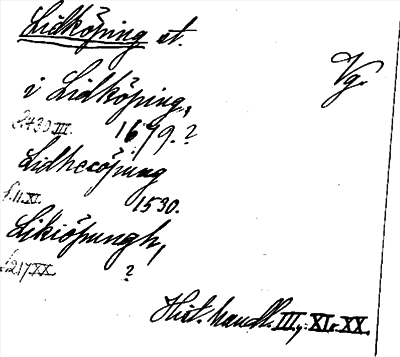 Lidköping st.
Vg.
i Lidköping,
s. 430. III. 1679.?
Lidhecöpung
s. 11. XI. 1530.
Likiöpungh,
s. 217 XX. ?
Hist. handl. III, XI, XX.